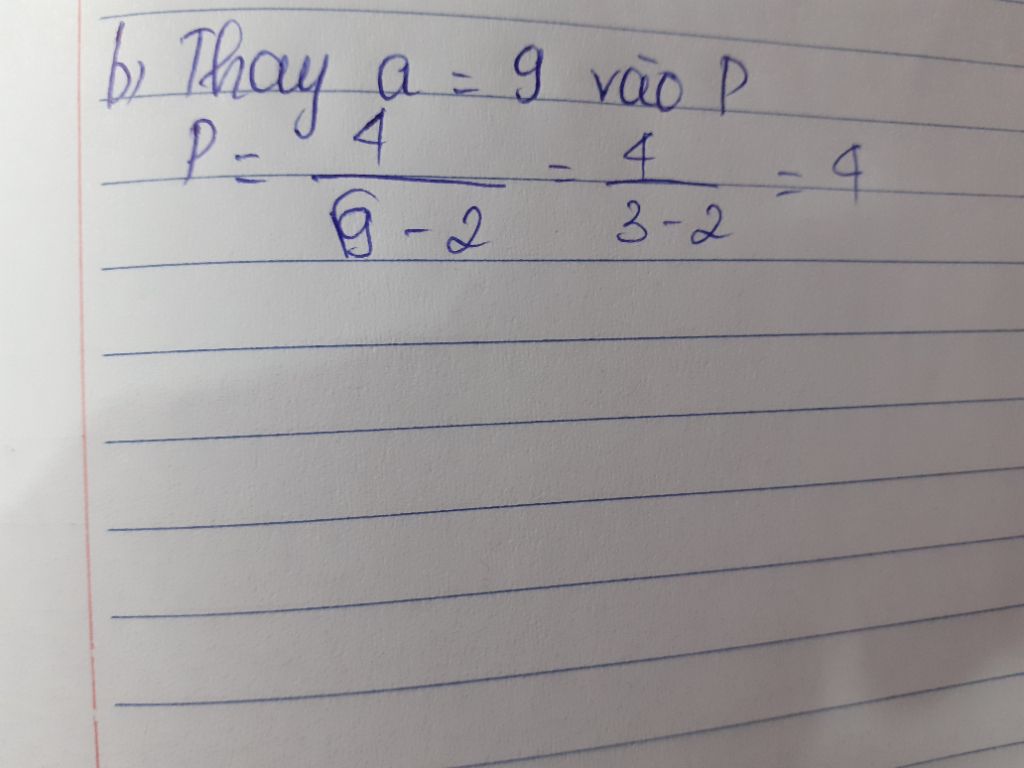 b, Thay a = 9 vào P
P = 4 / (√9 - 2) = 4 / (3 - 2) = 4